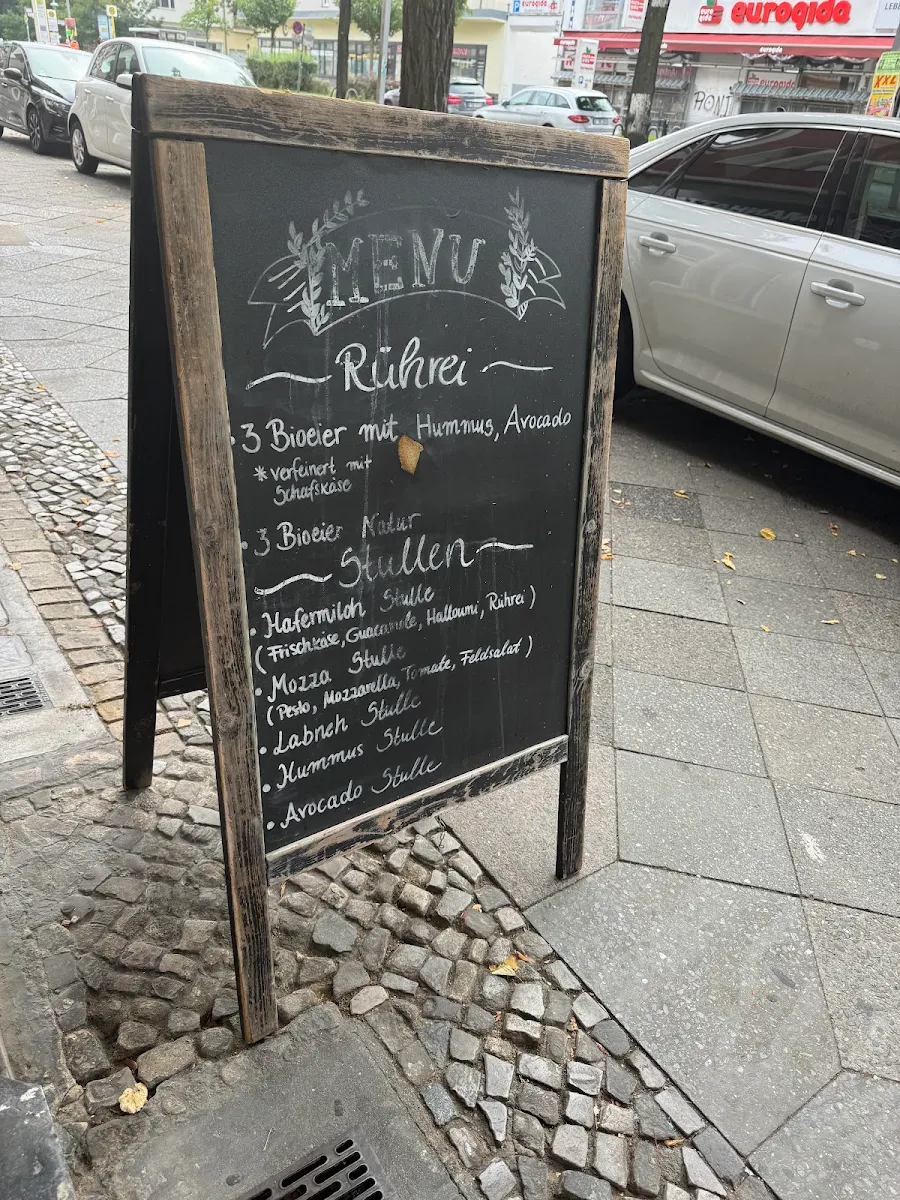 eurogida
eurogida
eurogida
PONT
XXL
MENU
Rührei
• 3 Bioeier mit Hummus, Avocado
* verfeinert mit
Schafskäse
• 3 Bioeier Natur
Stullen
• Hafermilch Stulle
( Frischkäse, Guacamole, Halloumi, Rührei )
• Mozza Stulle
( Pesto, Mozzarella, Tomate, Feldsalat )
• Labneh Stulle
• Hummus Stulle
• Avocado Stulle